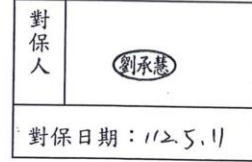 對保人
劉承慧
對保日期：112.5.11